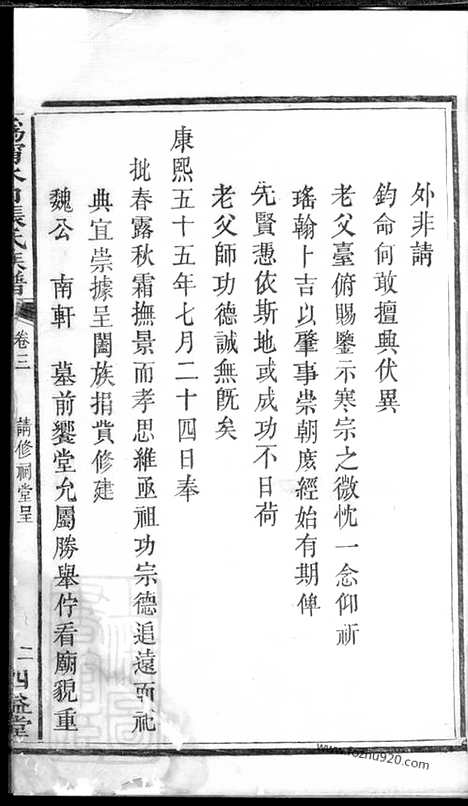 外非請
鈞命何敢擅興伏異
老父臺俯賜鑒示寒宗之微忱一念仰祈
瑤翰卜吉以肇事崇朝庻經始有期俾
先賢憑依斯地或成功不日荷
老父師功德誠無旣矣
康熙五十五年七月二十四日奉
批春露秋霜撫景而孝思維亟祖功宗德追遠而祀
典宜崇據呈闔族捐貲修建
魏公 南軒 墓前饗堂允屬勝舉佇看廟貌重
張氏族譜
卷三
請修祠堂呈
二
四益堂
www.fozhu920.com